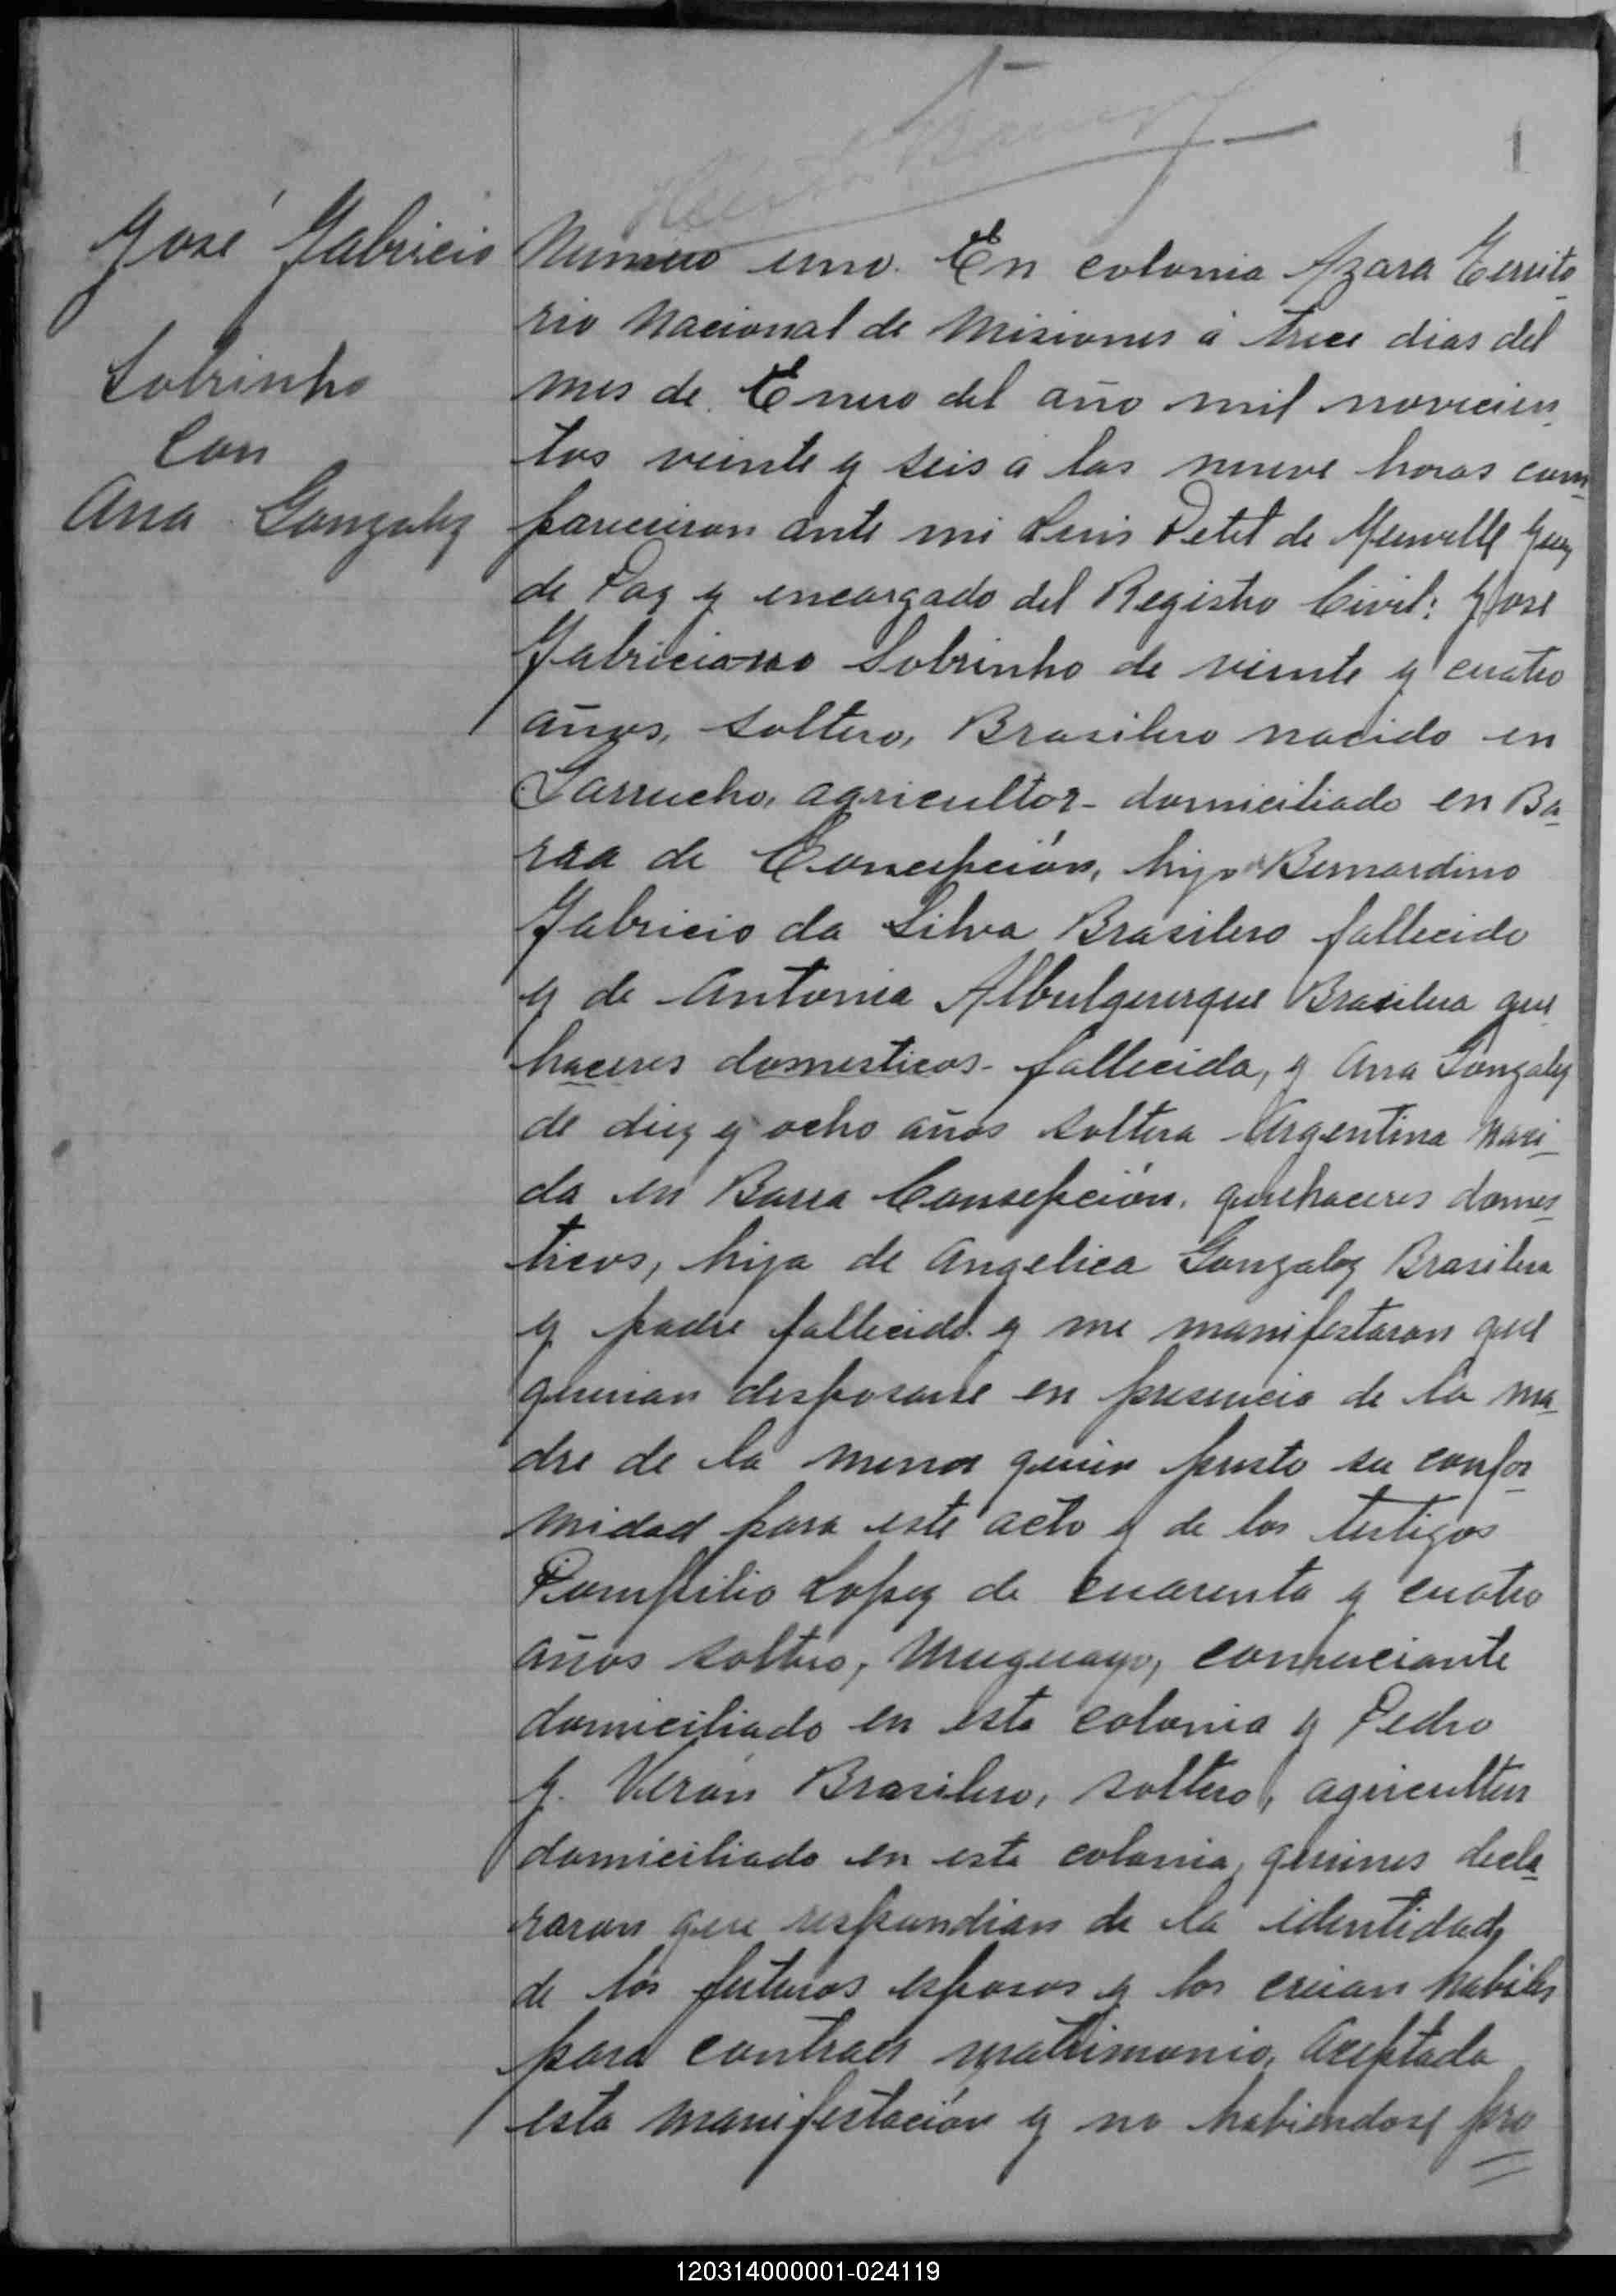 1
José Fabricio
Sobrinho
Con
Ana Gonzalez
Numero uno. En colonia Azara Territo
rio Nacional de Misiones á trece dias del
mes de Enero del año mil novecien
tos veinte y seis á las nueve horas com
parecieron ante mi Luis Petit de Meurville Juez
de Paz y encargado del Registro Civil: José
Fabriciano Sobrinho de veinte y cuatro
años, soltero, Brasilero nacido en
Garrucho, agricultor- domiciliado en Ba
rra de Concepción, hijo de Bernardino
Fabricio da Silva Brasilero fallecido
y de Antonia Albulquerque Brasilera que
haceres domesticos- fallecida, y Ana Gonzalez
de diez y ocho años soltera Argentina naci
da en Barra Consepción, quehaceres domes
ticos, hija de Angelica Gonzalez Brasilera
y padre fallecido. y me manifestaron que
querian desposarse en presencia de la ma
dre de la menor quien presto su confor
midad para este acto y de los testigos
Pompilio Lopez de cuarenta y cuatro
años soltero, Uruguayo, comerciante
domiciliado en esta colonia y Pedro
J. Verón Brasilero, soltero, agricultor
domiciliado en esta colonia, quienes decla
raron que respondian de la identidad
de los futuros esposos y los creian habiles
para contraer matrimonio, Aceptada
esta manifestación y no habiendose pro
120314000001-024119